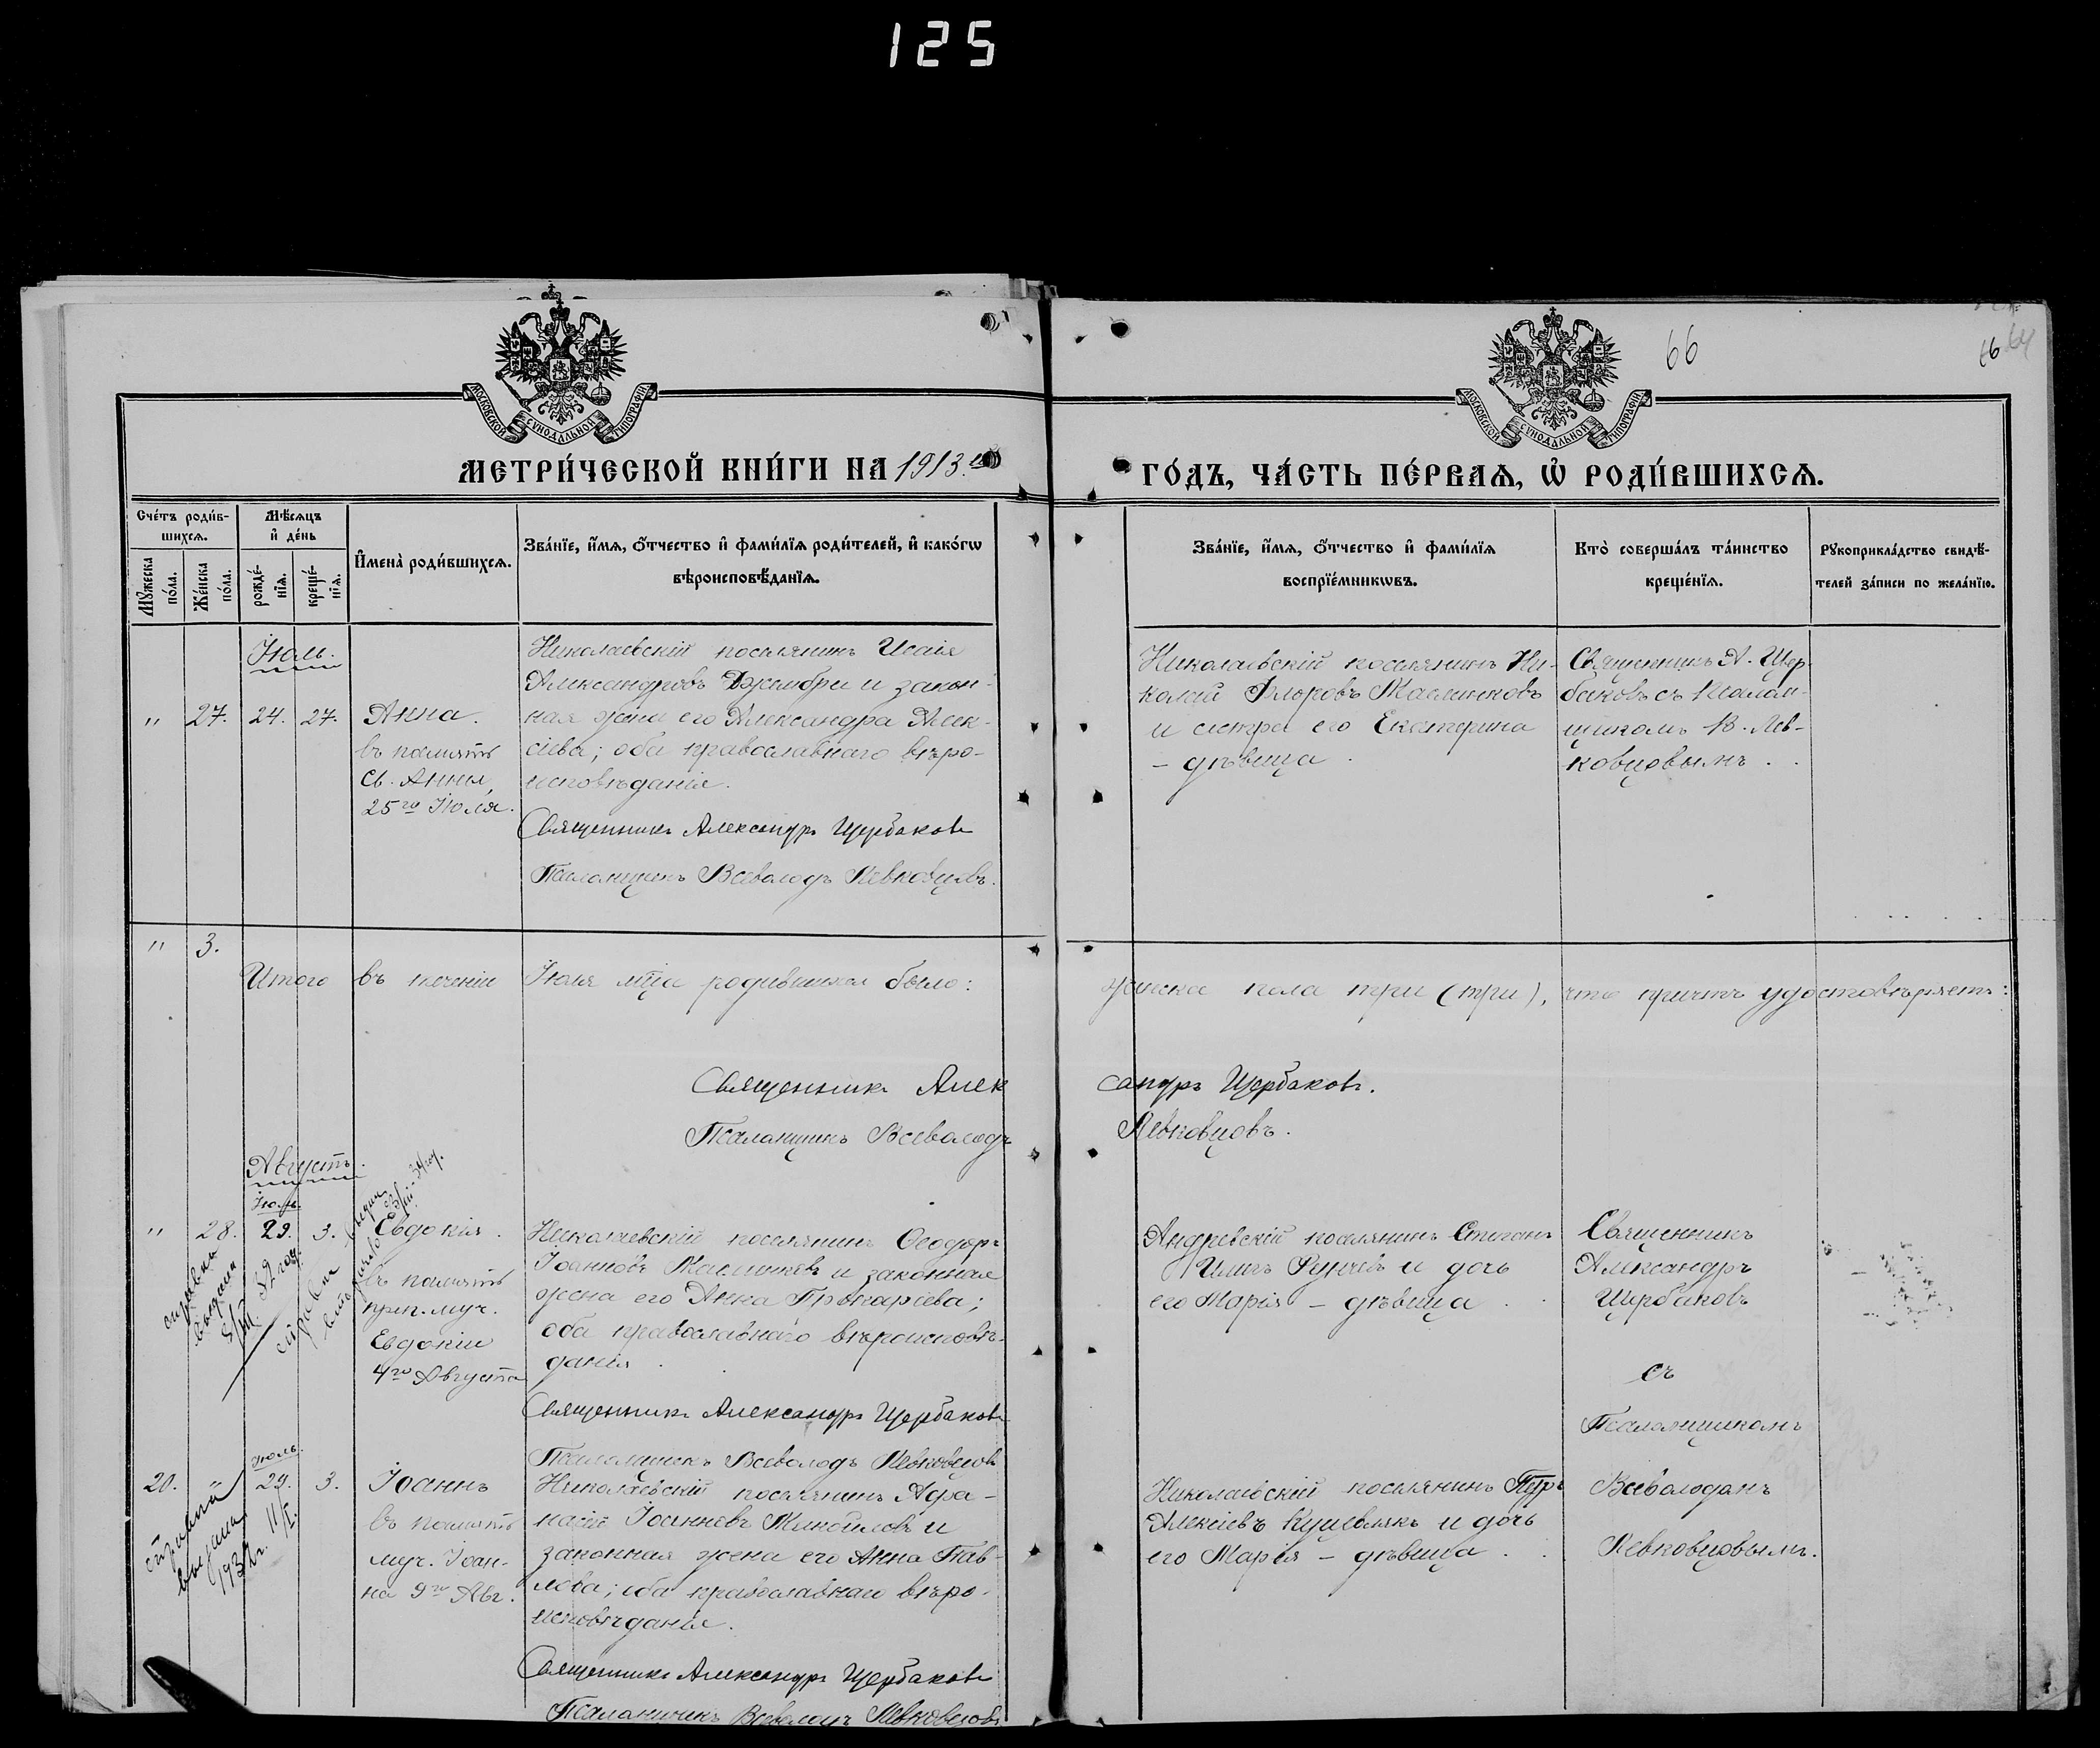 125
66
66 64
МОСКОВСКОЙ СѴНОДАЛЬНОЙ ТИПОГРАФІИ
МОСКОВСКОЙ СѴНОДАЛЬНОЙ ТИПОГРАФІИ
МЕТРИ́ЧЕСКОЙ КНИ́ГИ НА 1913.
ГО́ДЪ, ЧА́СТЬ ПЕ́РВАѦ, Ѡ҆ РОДИ́ВШИХСѦ.
Сче́тъ роди́в-
шихсѧ.
Мѣ́сѧцъ
и҆ де́нь
Мꙋ́жеска
по́ла.
Же́нска
по́ла.
рожде́-
нїѧ.
креще́-
нїѧ.
И҆мена̀ роди́вшихсѧ.
Зва́нїе, и҆́мѧ, ѻ҆́тчество и҆ фами́лїѧ роди́телей, и҆ како́гѡ
вѣроисповѣ́данїѧ.
Зва́нїе, и҆́мѧ, ѻ҆́тчество и҆ фами́лїѧ
воспрїе́мникѡвъ.
Кто̀ соверша́лъ та́инство
креще́нїѧ.
Рꙋкоприкла́дство свидѣ́-
телей за́писи по жела́нїю.
Іюль.
" 27. 24. 27.
Анна.
въ память
св. Анны,
25го Іюля.
Николаевскій поселянинъ Исаія
Александровъ Джелюбри и закон-
ная жена его Александра Алек-
сіева; оба православнаго вѣро-
исповѣданія.
Священникъ Александръ Щербаковъ
Псаломщикъ Всеволодъ Левковцовъ.
Николаевскій поселянинъ Ни-
колай Флоровъ Маслинковъ
и сестра его Екатерина
– дѣвица.
Священникъ А. Щер-
баковъ съ псалом-
щикомъ В. Лев-
ковцовымъ.
" 3.
Итого въ теченіи Іюля мца родившихся было:
женска пола три (три), что причтъ удостовѣряетъ:
Священникъ Алек
сандръ Щербаковъ.
Псаломщикъ Всеволодъ
Левковцовъ.
Августъ.
Іюль.
" 28. 29. 3.
Евдокія.
въ память
преп. муч.
Евдокіи
4го Августа
справка
выдана
8/III 32 год.
Николаевскій поселянинъ Ѳеодоръ
Іоанновъ Маслинковъ и законная
жена его Анна Прокаріева;
оба православнаго вѣроисповѣ-
данія.
Священникъ Александръ Щербаковъ
Псаломщикъ Всеволодъ Левковцовъ
Андреевскій поселянинъ Стефанъ
Илиевъ Рунчевъ и дочь
его Марія – дѣвица.
Священникъ
Александръ
Щербаковъ
съ
Псаломщикомъ
Всеволодомъ
Левковцовымъ.
Іюль.
20. " 29. 3.
Іоаннъ
въ память
муч. Іоан-
на 9го Авг.
выдана
Николаевскій поселянинъ Афа-
насій Іоанновъ и
законная жена его Анна Пав-
лова; оба православнаго вѣро-
исповѣданія.
Священникъ Александръ Щербаковъ
Псаломщикъ Всеволодъ Левковцовъ
Николаевскій поселянинъ Петръ
Алексіевъ Кушевлякъ и дочь
его Марія – дѣвица.